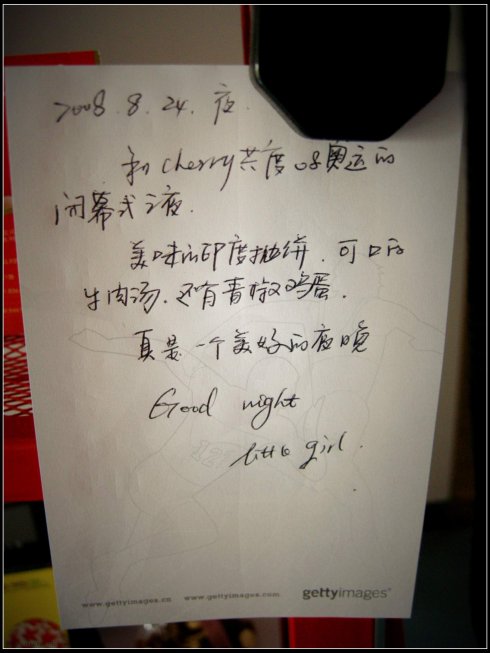 2008.8.24.夜.
和cherry共度08奥运的
闭幕式之夜.
美味的印度抛饼.可口的
牛肉汤.还有青椒鸡蛋.
真是一个美好的夜晚
Good night
little girl.
www.gettyimages.cn www.gettyimages.com gettyimages®